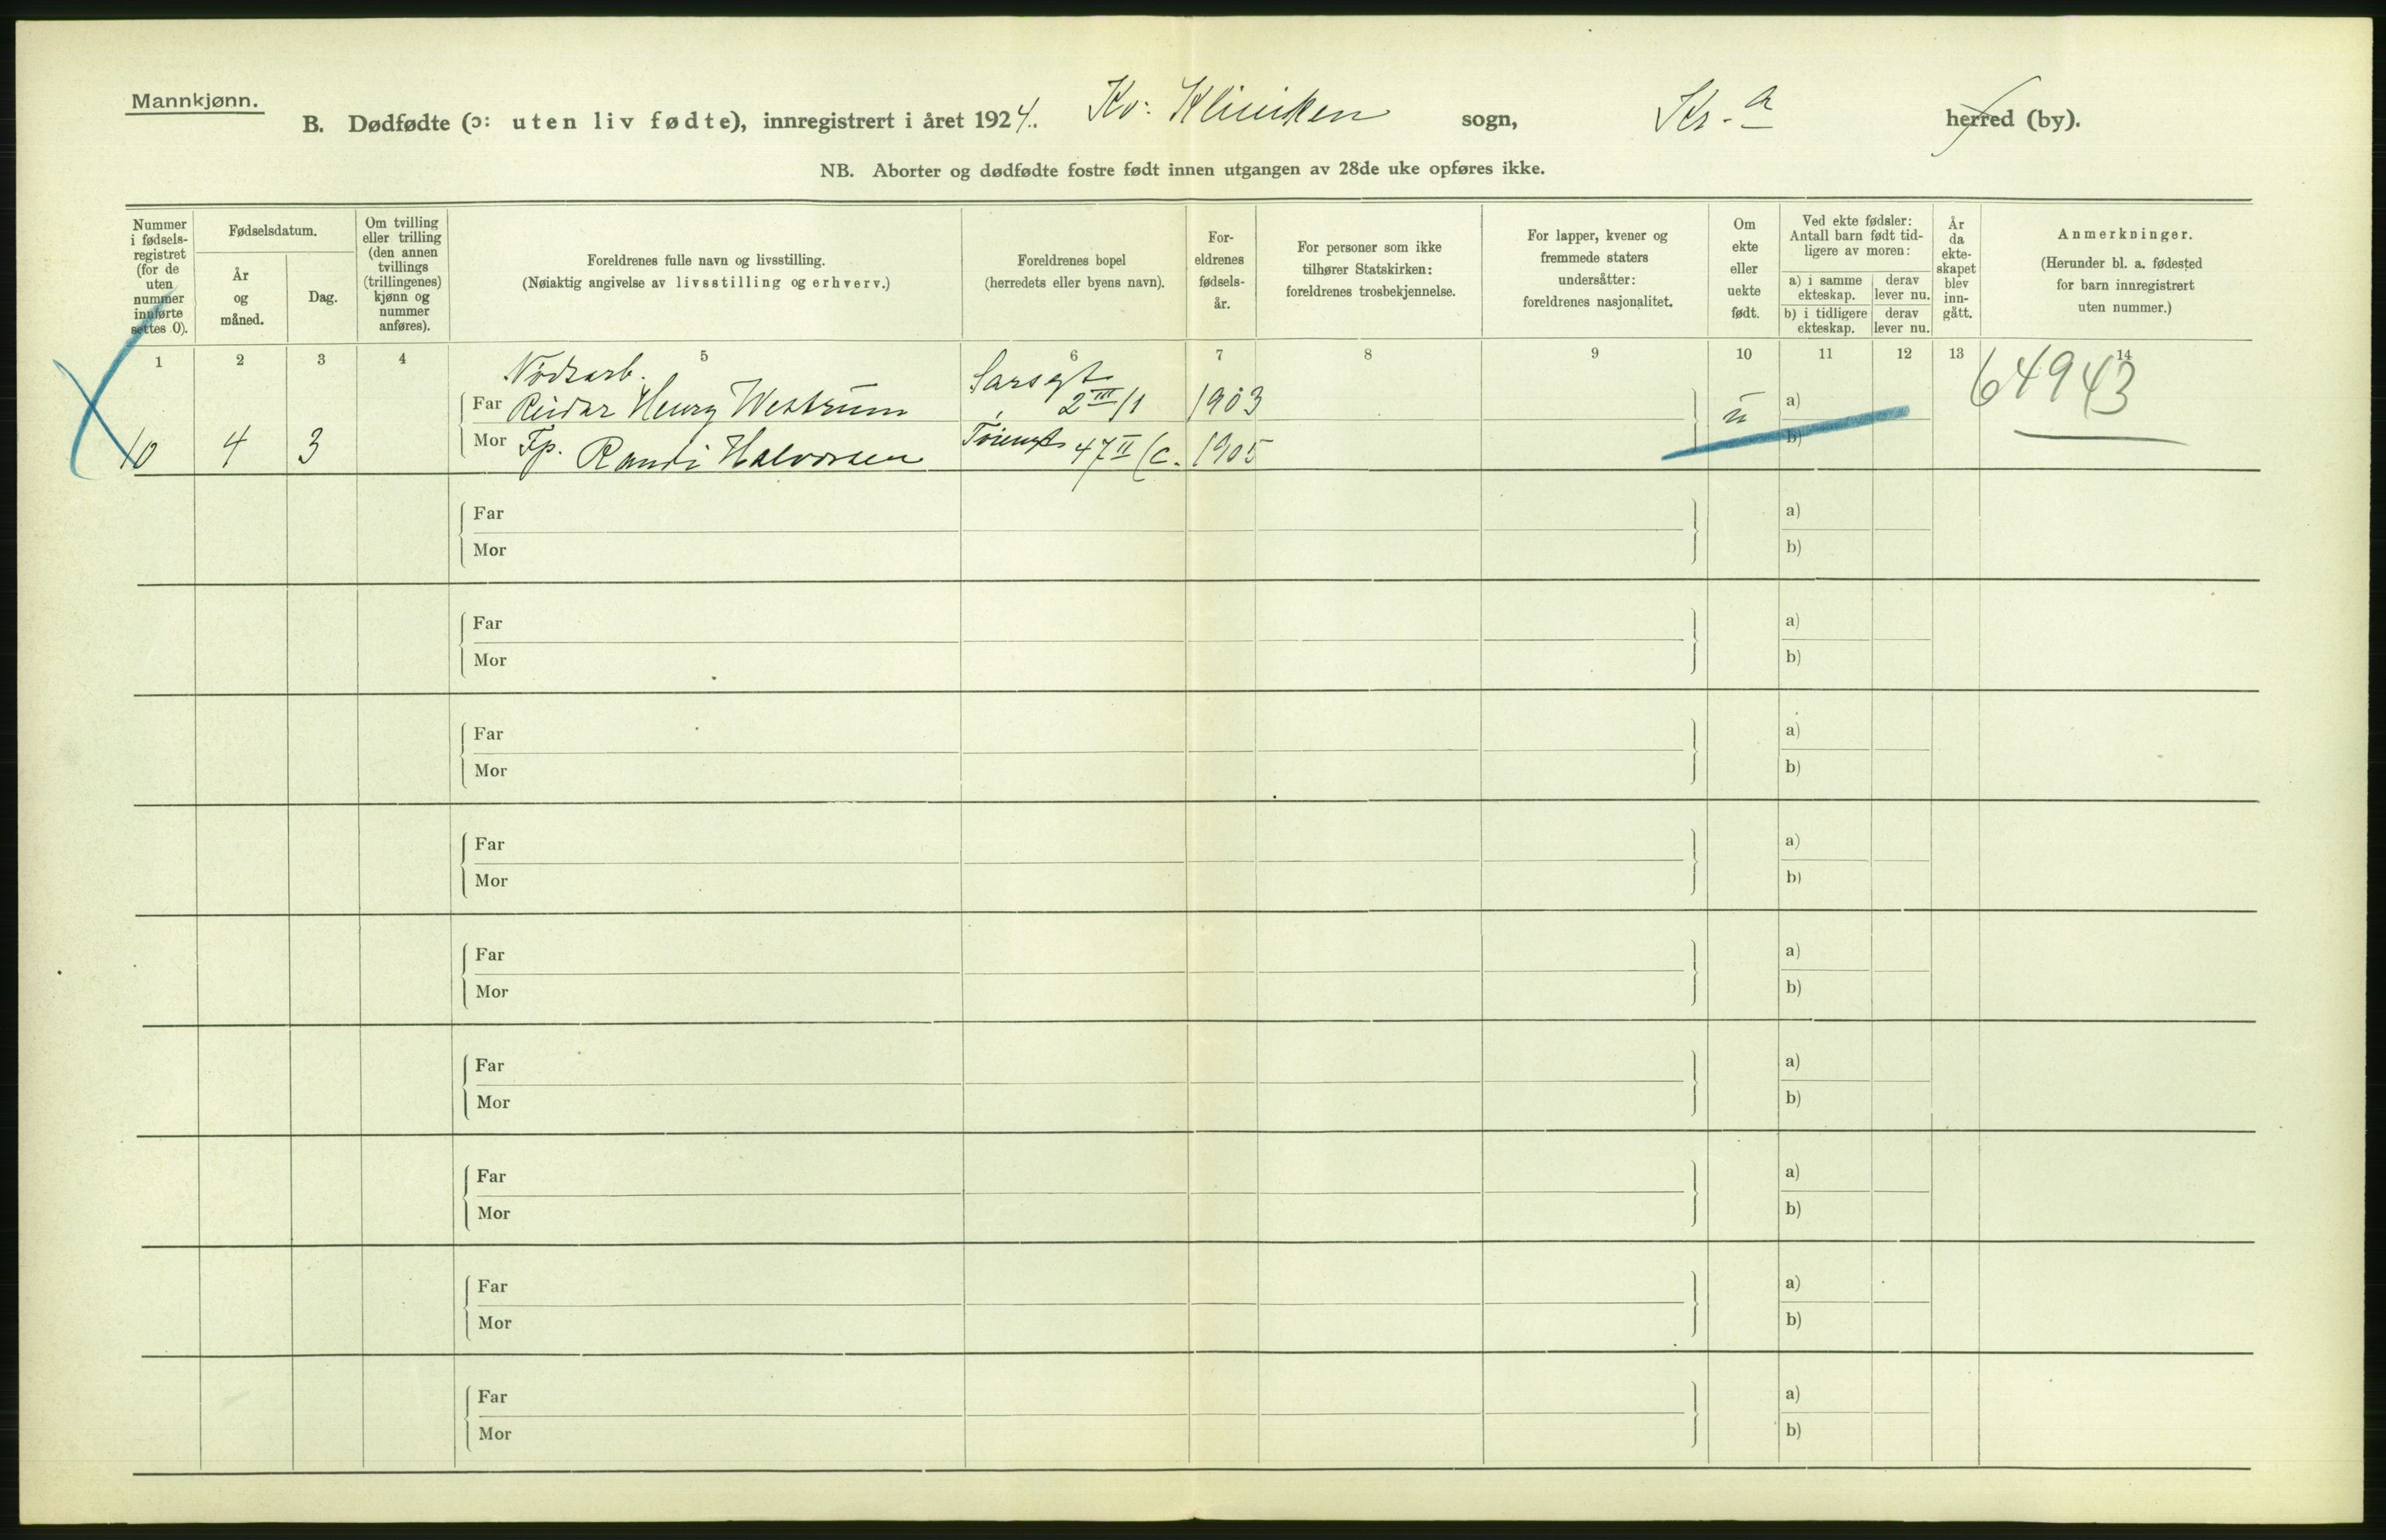 Mannkjønn.
B. Dødfødte (ɔ: uten liv fødte), innregistrert i året 1924. Kv: Kliniken sogn, Kr.a herred (by).
NB. Aborter og dødfødte fostre født innen utgangen av 28de uke opføres ikke.
Nummer
i fødsels-
registret
(for de
uten
nummer
innførte
settes 0).
Fødselsdatum.
År
og
måned.
Dag.
Om tvilling
eller trilling
(den annen
tvillings
(trillingenes)
kjønn og
nummer
anføres).
Foreldrenes fulle navn og livsstilling.
(Nøiaktig angivelse av livsstilling og erhverv.)
Foreldrenes bopel
(herredets eller byens navn).
For-
eldrenes
fødsels-
år.
For personer som ikke
tilhører Statskirken:
foreldrenes trosbekjennelse.
For lapper, kvener og
fremmede staters
undersåtter:
foreldrenes nasjonalitet.
Om
ekte
eller
uekte
født.
Ved ekte fødsler:
Antall barn født tid-
ligere av moren:
a) i samme
ekteskap.
derav
lever nu.
b) i tidligere
ekteskap.
derav
lever nu.
År
da
ekte-
skapet
blev
inn-
gått.
Anmerkninger.
(Herunder bl. a. fødested
for barn innregistrert
uten nummer.)
1 2 3 4 5 6 7 8 9 10 11 12 13 14
Nødsarb. Sarsgt 64943
Far Reidar Henry Westrum 2 III/1 1903 u a)
10 4 3 Mor Fp. Randi Halvorsen 47 II/c. 1905 b)
Far a)
Mor b)
Far a)
Mor b)
Far a)
Mor b)
Far a)
Mor b)
Far a)
Mor b)
Far a)
Mor b)
Far a)
Mor b)
Far a)
Mor b)
Far a)
Mor b)